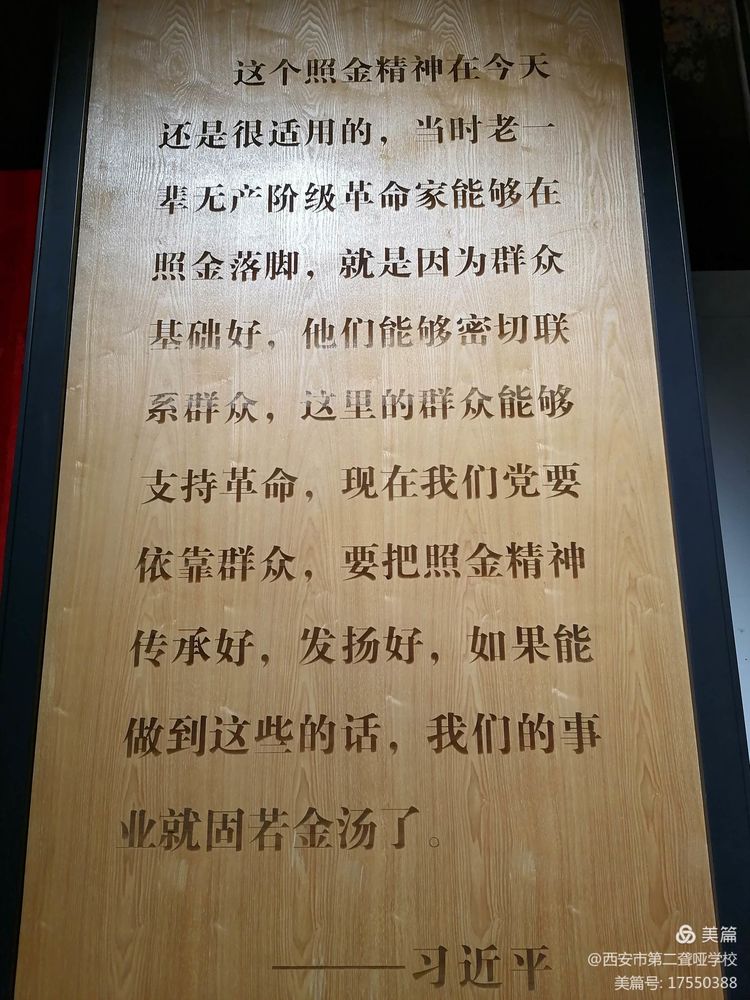 这个照金精神在今天
还是很适用的，当时老一
辈无产阶级革命家能够在
照金落脚，就是因为群众
基础好，他们能够密切联
系群众，这里的群众能够
支持革命，现在我们党要
依靠群众，要把照金精神
传承好，发扬好，如果能
做到这些的话，我们的事
业就固若金汤了。
——习近平
美篇
@西安市第二聋哑学校
美篇号: 17550388